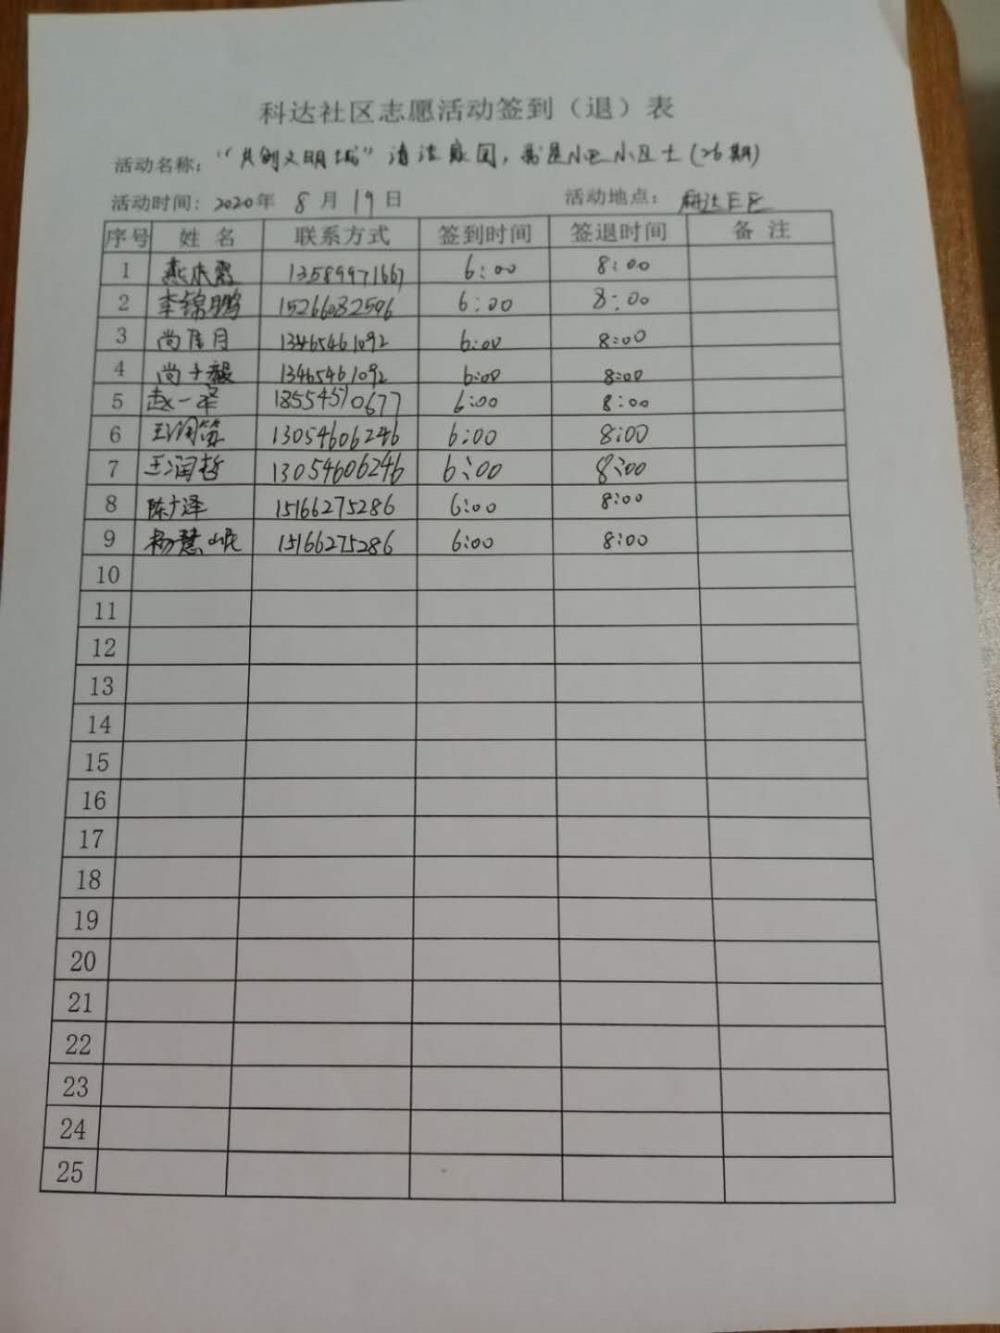 科达社区志愿活动签到（退）表
活动名称："共创文明城"清洁家园，我是小巴小卫士(26期)
活动时间：2020年 8月19日 活动地点：科达E区
序号 姓名 联系方式 签到时间 签退时间 备注
1 燕 13589971667 6:00 8:00
2 李锦鹏 15266082506 6:00 8:00
3 尚佳月 13465461092 6:00 8:00
4 尚子毅 13465461092 6:00 8:00
5 赵一泽 18554510677 6:00 8:00
6 王润 13054606246 6:00 8:00
7 王润哲 13054606246 6:00 8:00
8 陈广泽 15166275286 6:00 8:00
9 杨慧岷 15166275286 6:00 8:00
10
11
12
13
14
15
16
17
18
19
20
21
22
23
24
25